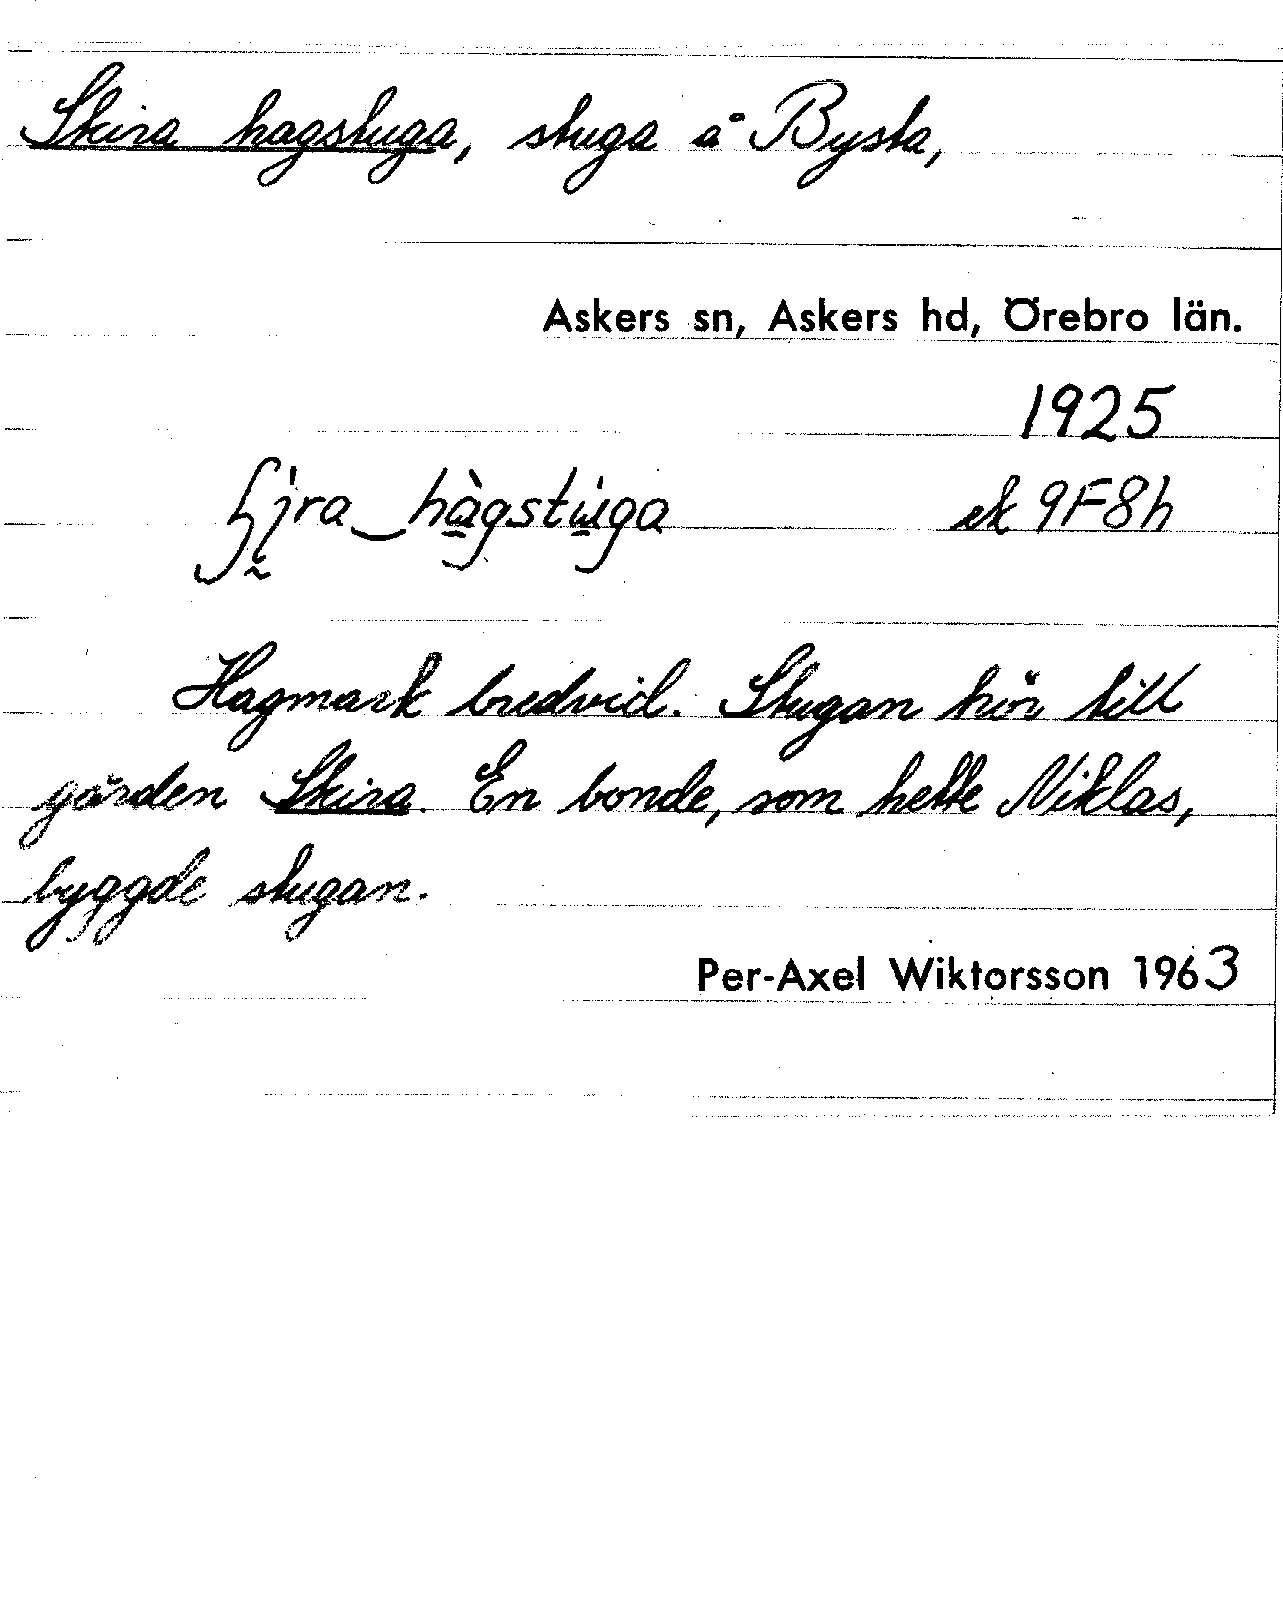 Skira hagstuga, stuga å Bysta,
Askers sn, Askers hd, Örebro län.
1925
hàgstùga ek 9F8h
Hagmark bredvid. Stugan hör till
gården Skira. En bonde, som hette Niklas,
byggde stugan.
Per-Axel Wiktorsson 1963